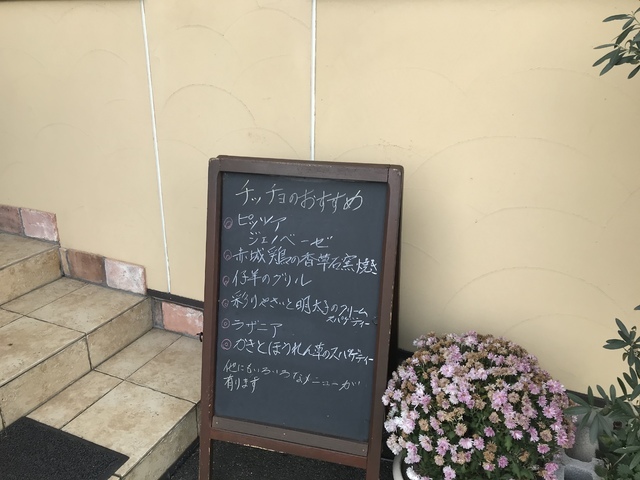 チッチョのおすすめ
◎ピッツァ
ジェノベーゼ
◎赤城鶏の香草石窯焼き
◎仔羊のグリル
◎彩りやさいと明太子のクリーム
スパゲティー
◎ラザニア
◎カキとほうれん草のスパゲティー
他にもいろいろなメニューが
有ります